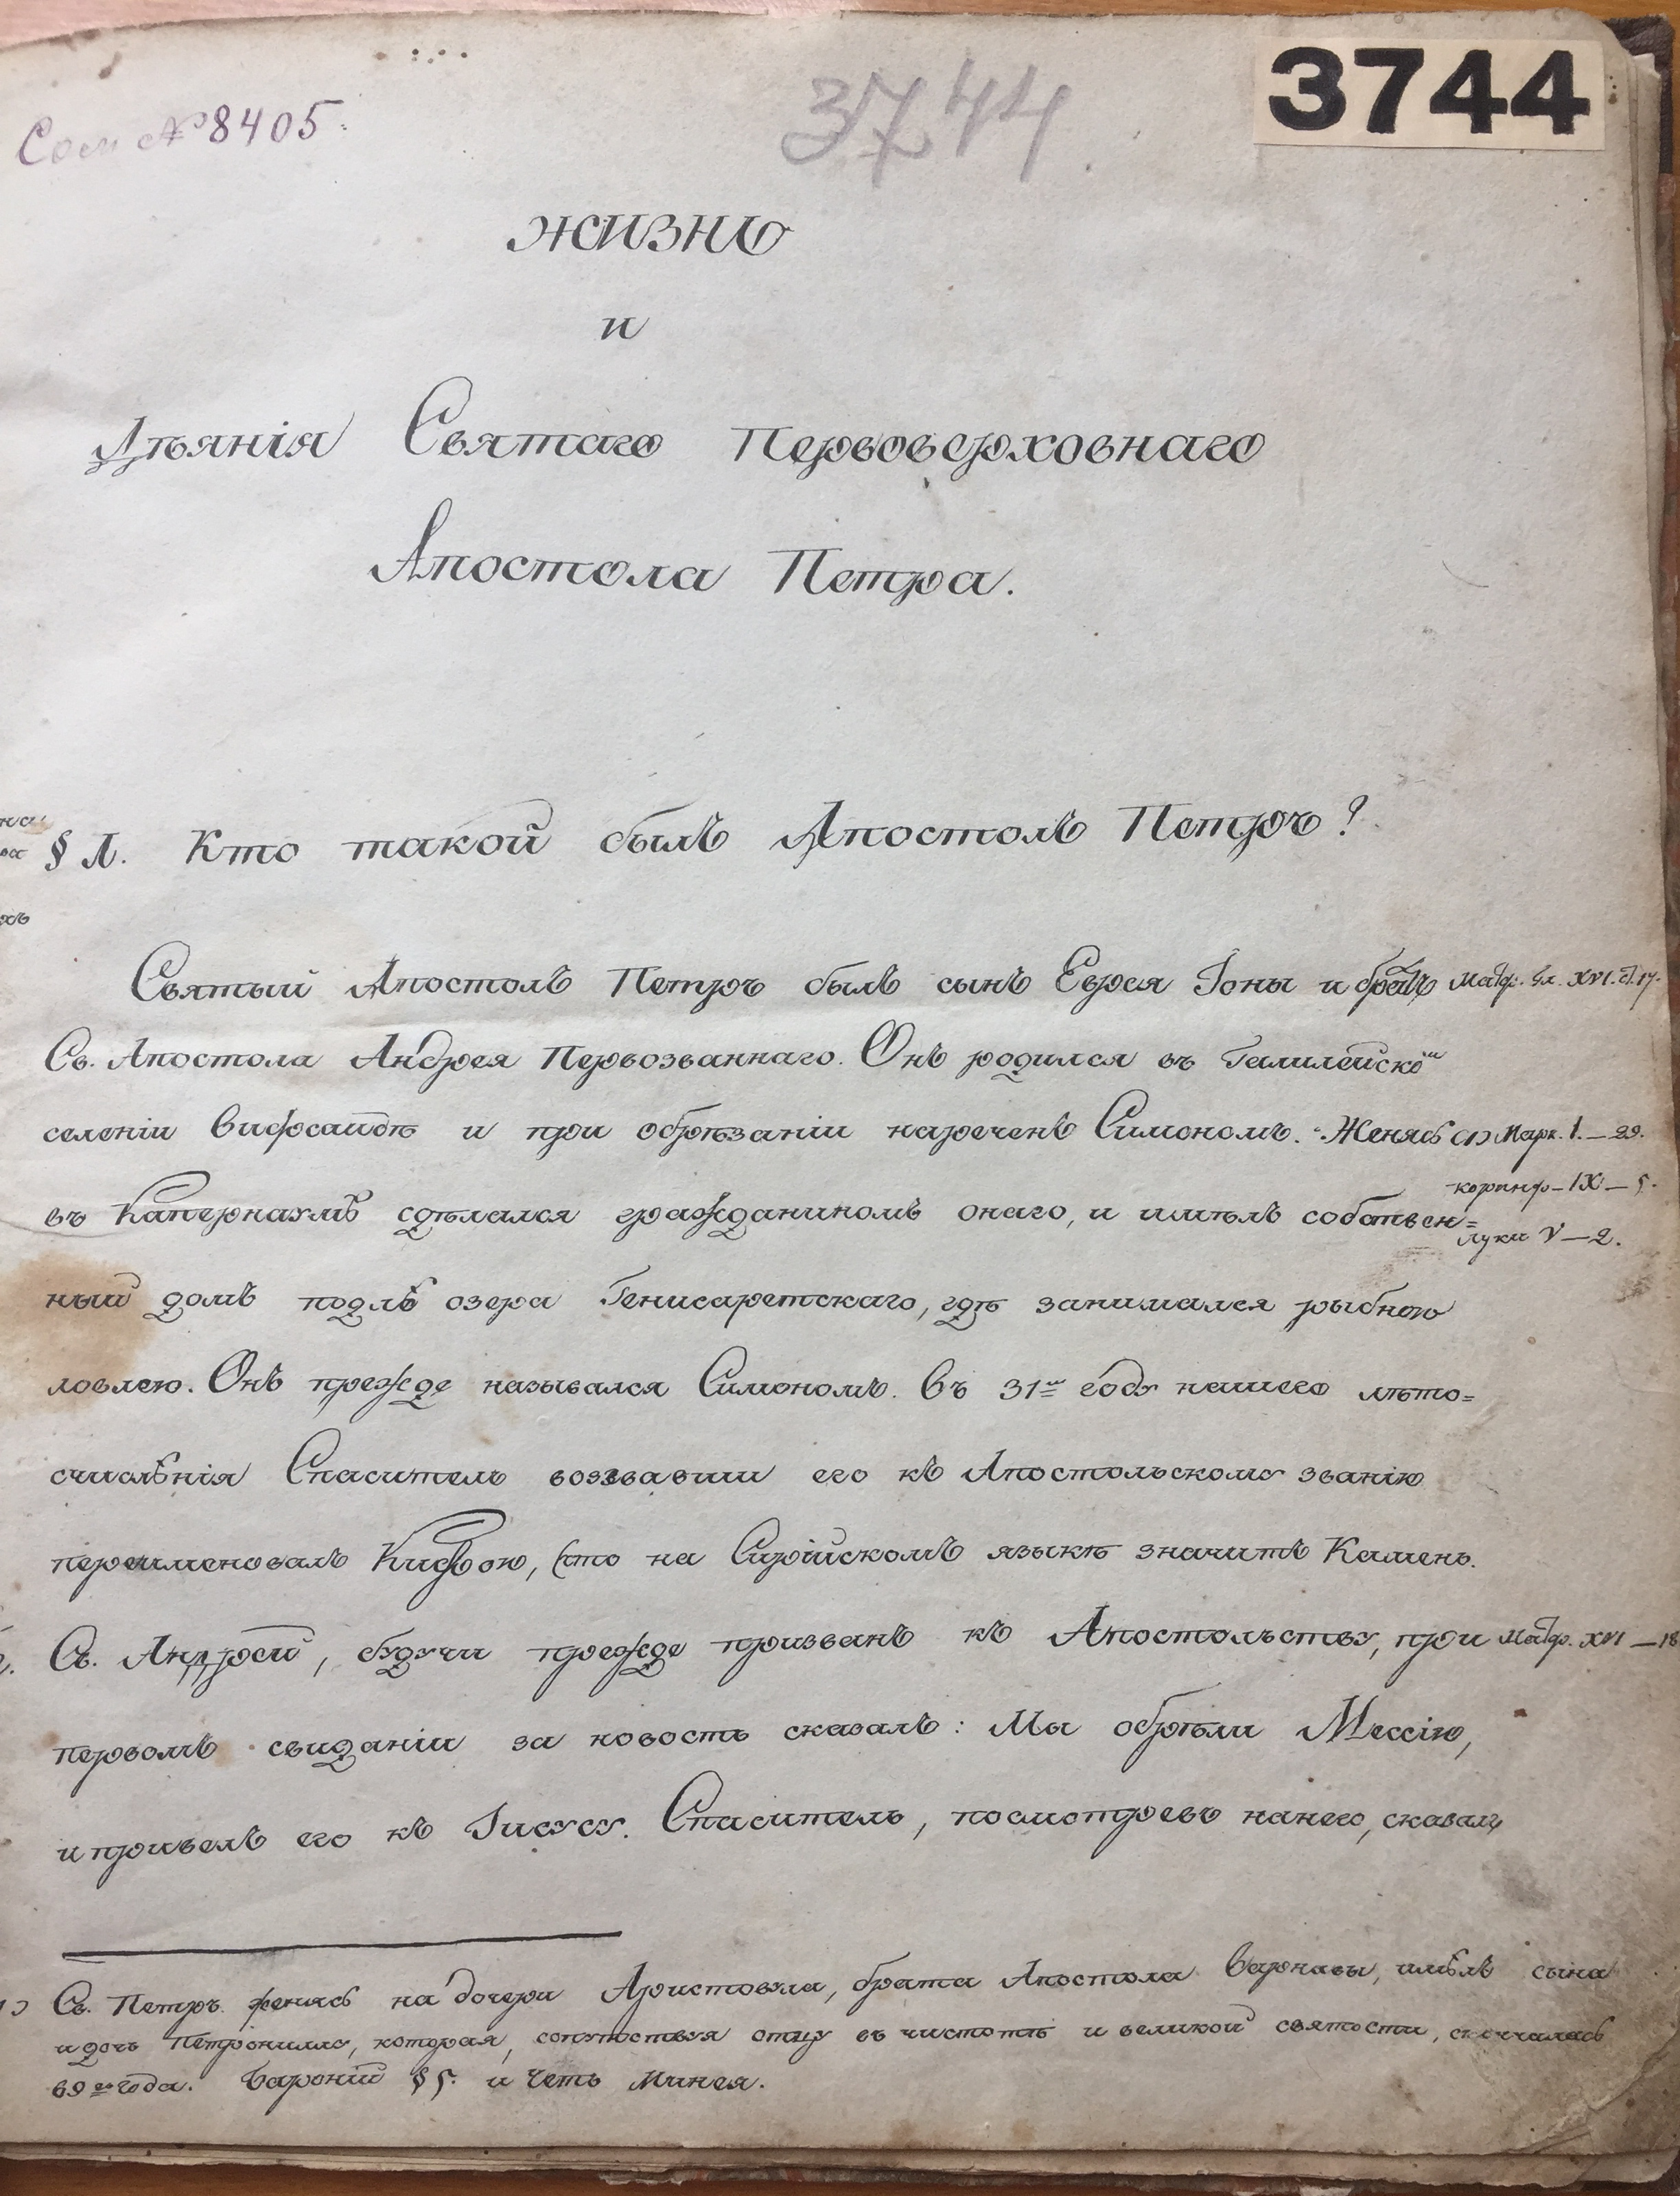 3744
3744
№ 8405
Жизнь
и
Дѣянія Святаго Первоверховнаго
Апостола Петра.
§ 1. Кто такой былъ Апостолъ Петръ?
Святый Апостолъ Петръ былъ сынъ Еврея Іоны и братъ Матѳ. Гл. XVI. ст. 17.
Св. Апостола Андрея Первозваннаго. Онъ родился въ Галилейско
селеніи Вифсаидѣ и при обрѣзаніи нареченъ Симономъ. Женясь (1) Марк. 1. — 29.
коринф — IX — 5.
въ Капернаумѣ сдѣлался гражданиномъ онаго, и имѣлъ собствен=
луки V — 2.
ный домъ подлѣ озера Генисаретскаго, гдѣ занимался рыбною
ловлею. Онъ прежде назывался Симономъ. Въ 31м году нашего лѣто=
счислѣнія Спаситель воззвавши его къ Апостольскому званію
переименовалъ Кифою, (что на Сирійскомъ языкѣ значитъ Камень.
Св. Андрей, будучи прежде призванъ къ Апостольству, при Матѳ. XVI — 18
первомъ свиданіи за новость сказалъ: Мы обрѣли Мессію,
и привелъ его къ Іисусу. Спаситель, посмотревъ нанего, сказалъ
1) Св. Петръ женясь на дочери Аристовула, брата Апостола Варнавы, имѣлъ сына
и дочь Петронилу, которая, сопутствуя отцу въ чистотѣ и великой святости, скончалась
69го года. Бароній § 5. и Четь Минея.